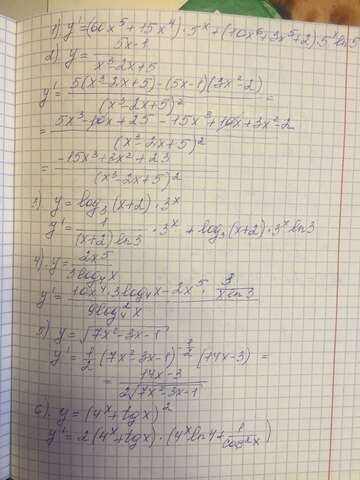 1) y' = (60x⁵ + 15x⁴) · 5ˣ + (10x⁶ + 3x⁵ + 2) · 5ˣ ln5
2) y = (5x-1)/(x³-2x+5)
y' = (5(x³-2x+5) - (5x-1)(3x²-2))/(x³-2x+5)² =
= (5x³ - 10x + 25 - 15x³ + 10x + 3x² - 2)/(x³-2x+5)²
= (-15x³ + 3x² + 23)/(x³-2x+5)²
3) y = log₃(x+2) · 3ˣ
y' = 1/((x+2) ln3) · 3ˣ + log₃(x+2) · 3ˣ ln3
4) y = 2x⁵/(3log₄x)
y' = (10x⁴ · 3log₄x - 2x⁵ · 3/(x ln4))/(9log₄²x)
5) y = √(7x²-3x-1)
y' = 1/2 (7x²-3x-1)^(-1/2) (14x-3) =
= (14x-3)/(2√(7x²-3x-1))
6) y = (4ˣ + tgx)²
y' = 2(4ˣ + tgx) · (4ˣ ln4 + 1/cos²x)